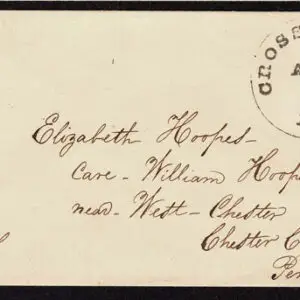 CROSS
A
Elizabeth Hoopes
care - William Hoop
near - West - Chester
Chester C
Pen